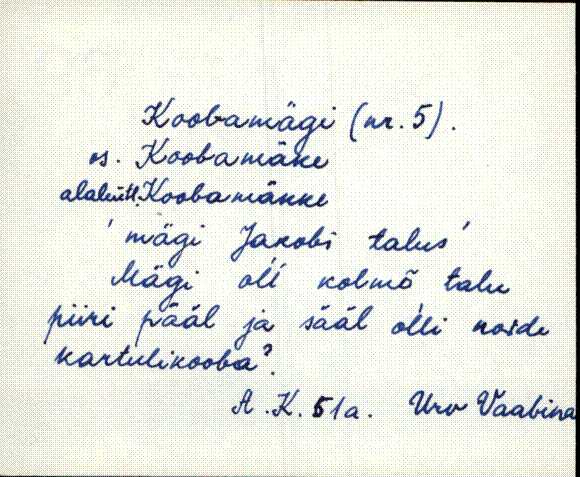 Koobamägi (nr. 5).
os. Koobamäke
alaleütl. Koobamäkke
'mägi Jakobi talus'
Mägi oĺĺ kolmõ talu
piiri pääl ja sääl oĺli noide
kartulikooba?
A.K. 51a. Urv Vaabina